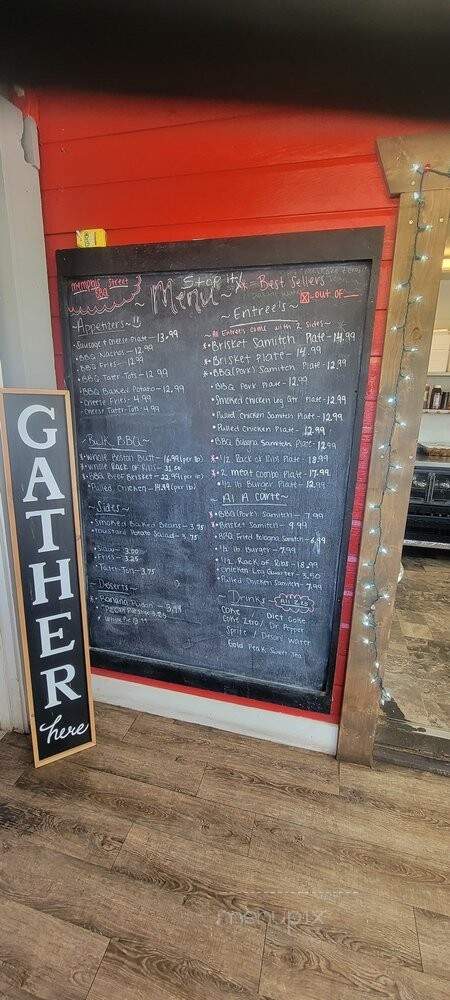 Memphis Street
BBQ
~ Menu ~
** = Best Sellers
☒ - out of __
~ Appetizers ~
Sausage & Cheese Plate - 13.99
• BBQ Nachos - 12.99
• BBQ Fries - 12.99
• BBQ Tater-Tots - 12.99
• BBQ Baked Potato - 12.99
• Cheese Fries - 4.99
• Cheese Tater-Tots - 4.99
~ Bulk BBQ ~
* • Whole Boston Butt - 16.99 (per lb)
* • Whole Rack of Ribs - 31.50
* • BBQ Beef Brisket - 22.99 (per lb)
• Pulled Chicken - 14.99 (per lb)
~ Sides ~
• Smoked Baked Beans - 3.75
• Mustard Potato Salad - 3.75
• Slaw - 3.00
• Fries - 3.25
• Tater-Tots - 3.75
~ Desserts ~
* • Banana Puddin'
~ Entree's ~
~ All Entree's come with 2 sides ~
* • Brisket Samitch Plate - 14.99
* • Brisket Plate - 14.99
* • BBQ (Pork) Samitch Plate - 12.99
• BBQ Pork Plate - 12.99
Smoked Chicken Leg Qtr Plate - 12.99
• Pulled Chicken Samitch Plate - 12.99
• Pulled Chicken Plate - 12.99
• BBQ Bologna Samitch Plate - 12.99
* • 1/2 Rack of Ribs Plate - 18.99
* • 2 meat combo Plate - 17.99
• 1/2 lb Burger Plate - 12.99
~ Al A Carte ~
* • BBQ (Pork) Samitch - 7.99
* • Brisket Samitch - 9.99
• BBQ Fried Bologna Samitch - 6.99
• 1/2 lb Burger - 7.99
• 1/2 Rack of Ribs - 18.99
• Chicken Leg Quarter - 3.50
• Pulled Chicken Samitch - 7.99
~ Drinks ~
Coke / Diet Coke
Coke Zero / Dr. Pepper
Sprite / Dasani Water
Gold Peak Sweet Tea
GATHER
here
menupix